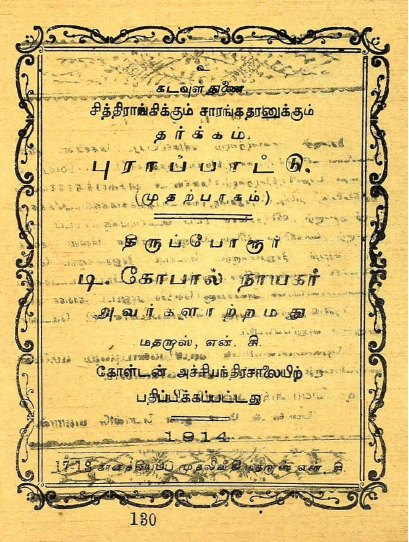 உ
கடவுள் துணை
சித்திராங்கிக்கும் சாரங்கதரனுக்கும்
தர்க்கம்.
புராப்பாட்டு.
(முதற்பாகம்)
திருப்போரூர்
டி. கோபால் நாயகர்
அவர்களாற்றமது
மதறாஸ், என். சி
கோள்டன் அச்சியந்திரசாலையிற்
பதிப்பிக்கப்பட்டது
1914
17-18 முதலி வீதி மதறாஸ் என். சி
130